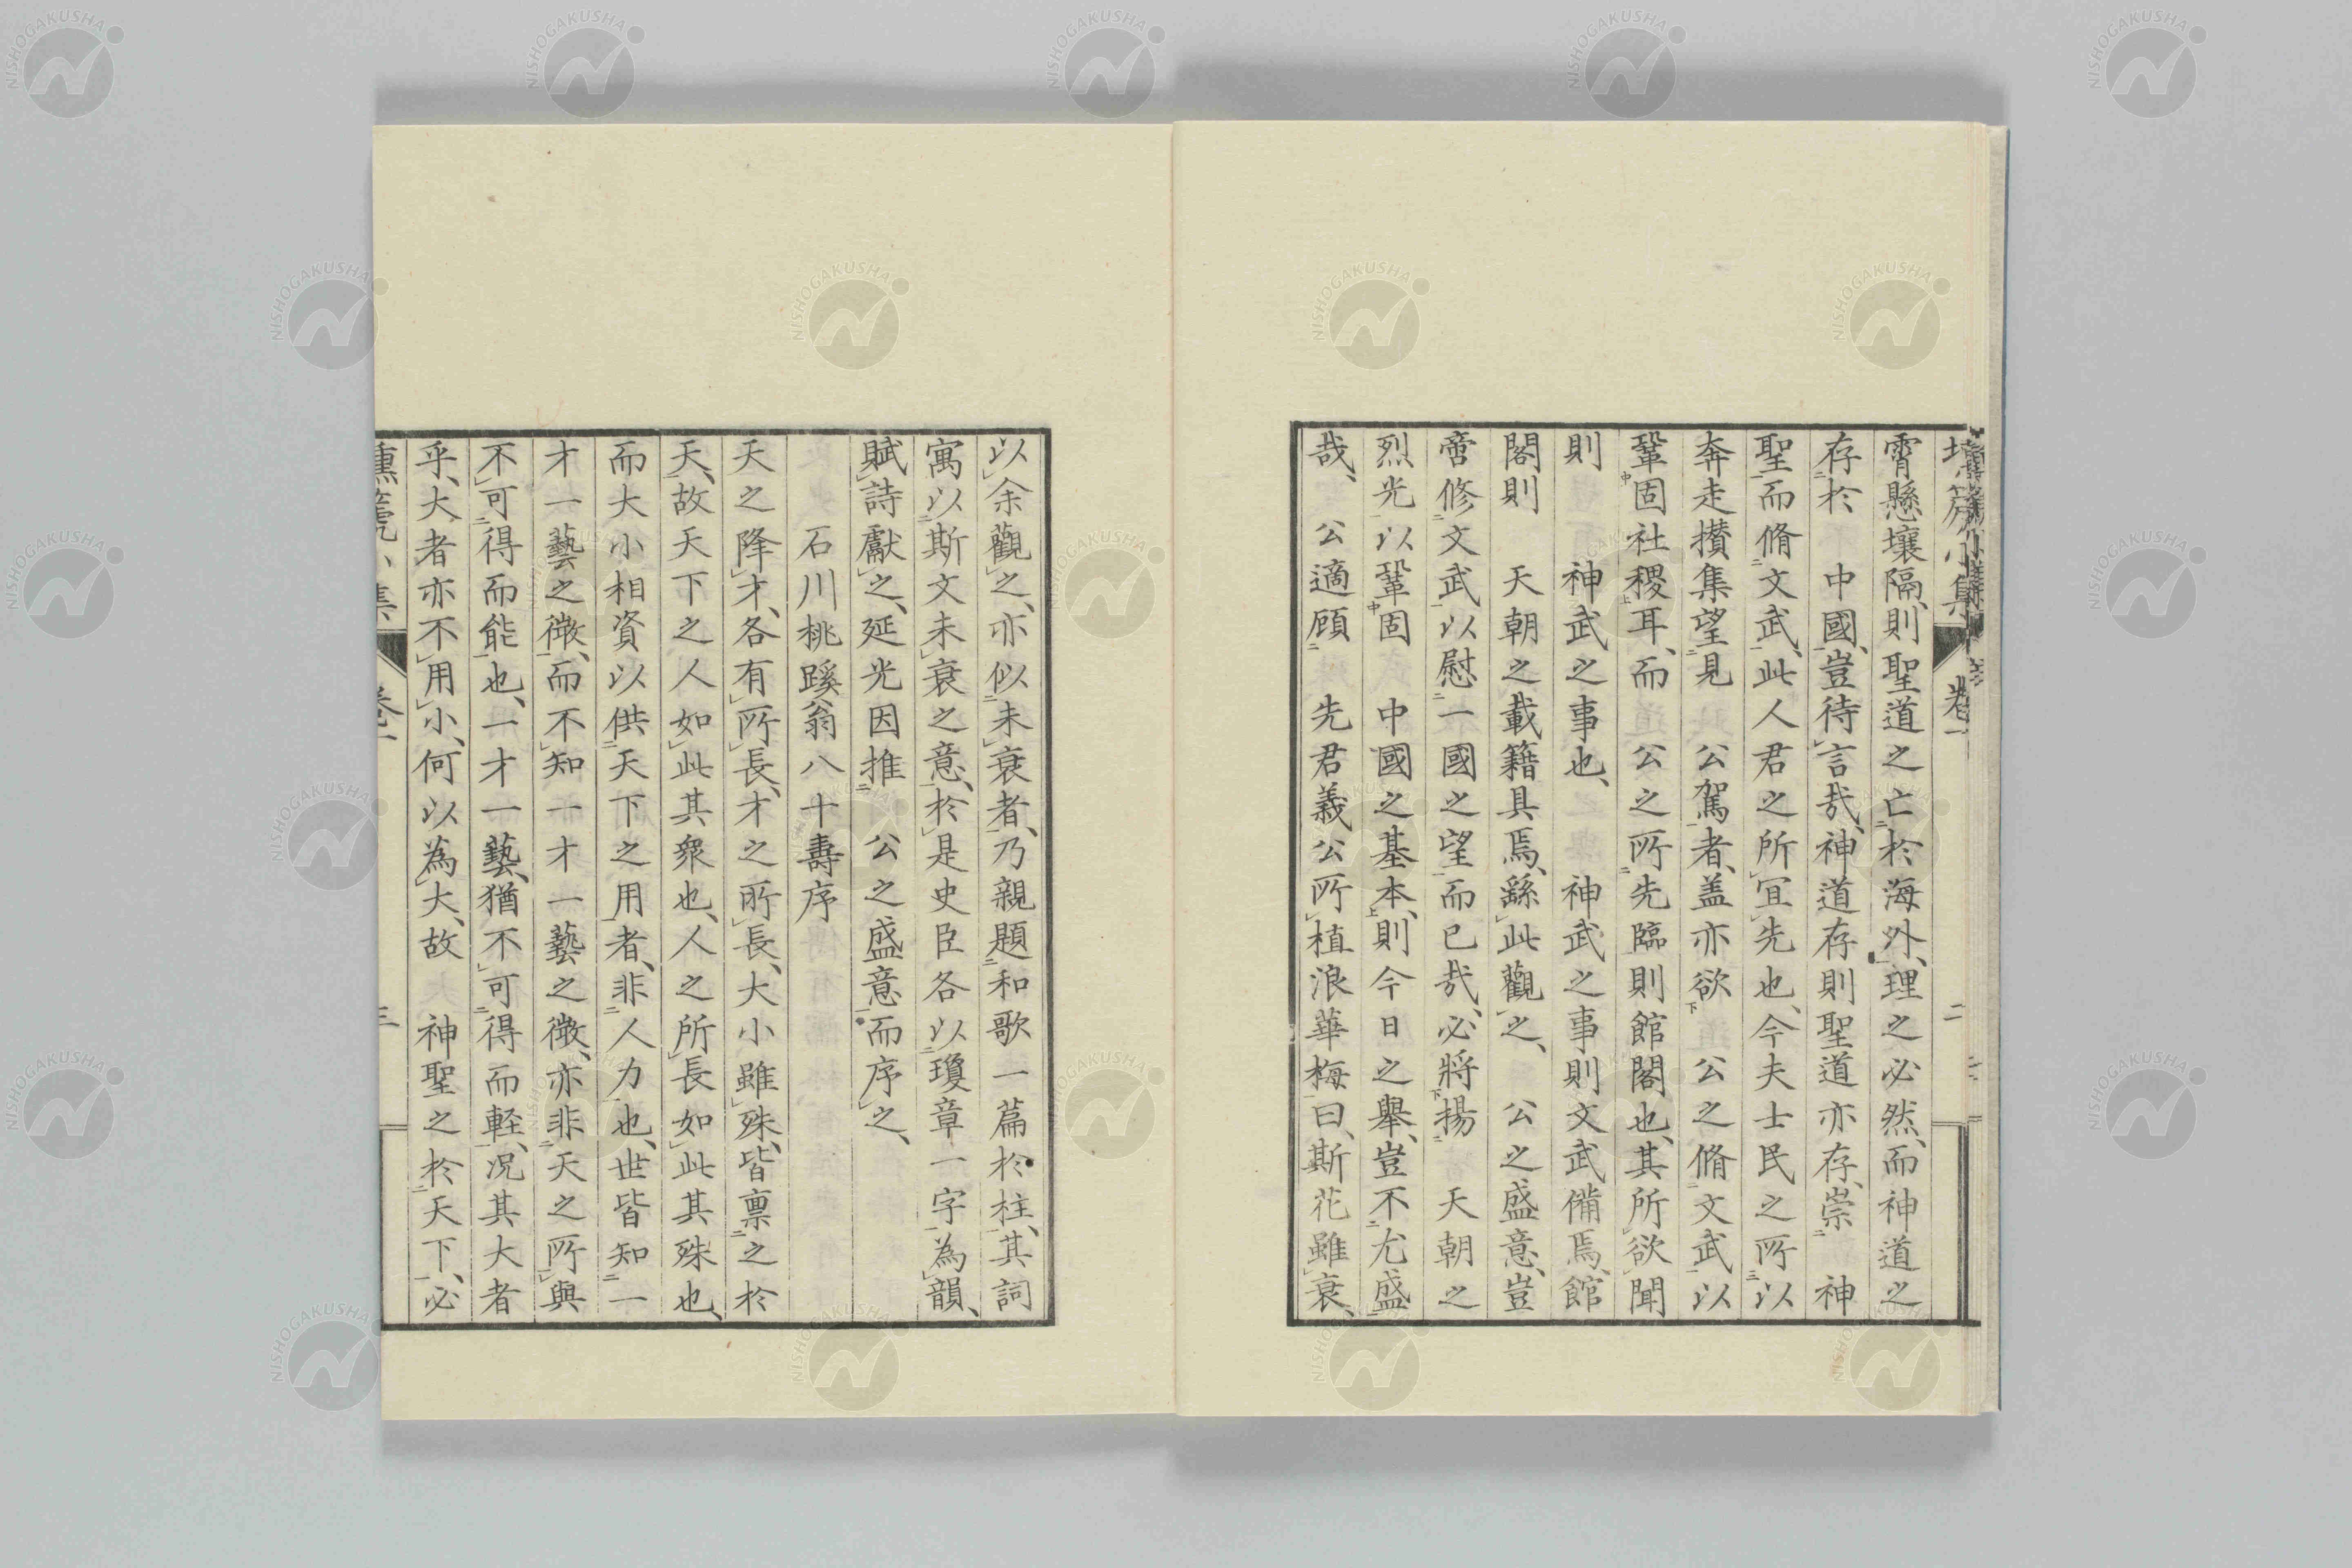 壎篪小集 卷一 二
霄懸壤隔、則聖道之亡於海外、理之必然、而神道之
存於 中國、豈待言哉、神道存則聖道亦存、崇 神
聖而脩文武、此人君之所宜先也、今夫士民之所以
奔走攅集望見 公駕者、蓋亦欲 公之脩文武以
鞏固社稷耳、而 公之所先臨則館閣也、其所欲聞
則 神武之事也、 神武之事則文武備焉、館
閣則 天朝之載籍具焉、繇此觀之、 公之盛意、豈
啻修文武以慰一國之望而已哉、必將揚 天朝之
烈光以鞏固 中國之基本、則今日之舉、豈不尤盛
哉、 公適顧 先君義公所植浪華梅曰、斯花雖衰、
以余觀之、亦似未衰者、乃親題和歌一篇於柱、其詞
寓以斯文未衰之意、於是史臣各以瓊章一字為韻、
賦詩獻之、延光因推 公之盛意而序之、
石川桃蹊翁八十壽序
天之降才、各有所長、才之所長、大小雖殊、皆禀之於
天、故天下之人如此其衆也、人之所長如此其殊也、
而大小相資以供天下之用者、非人力也、世皆知一
才一藝之微、而不知一才一藝之微、亦非天之所與
不可得而能也、一才一藝、猶不可得而軽、况其大者
乎、大者亦不用小、何以為大、故 神聖之於天下、必
壎篪小集 卷一 三
NISHOGAKUSHA